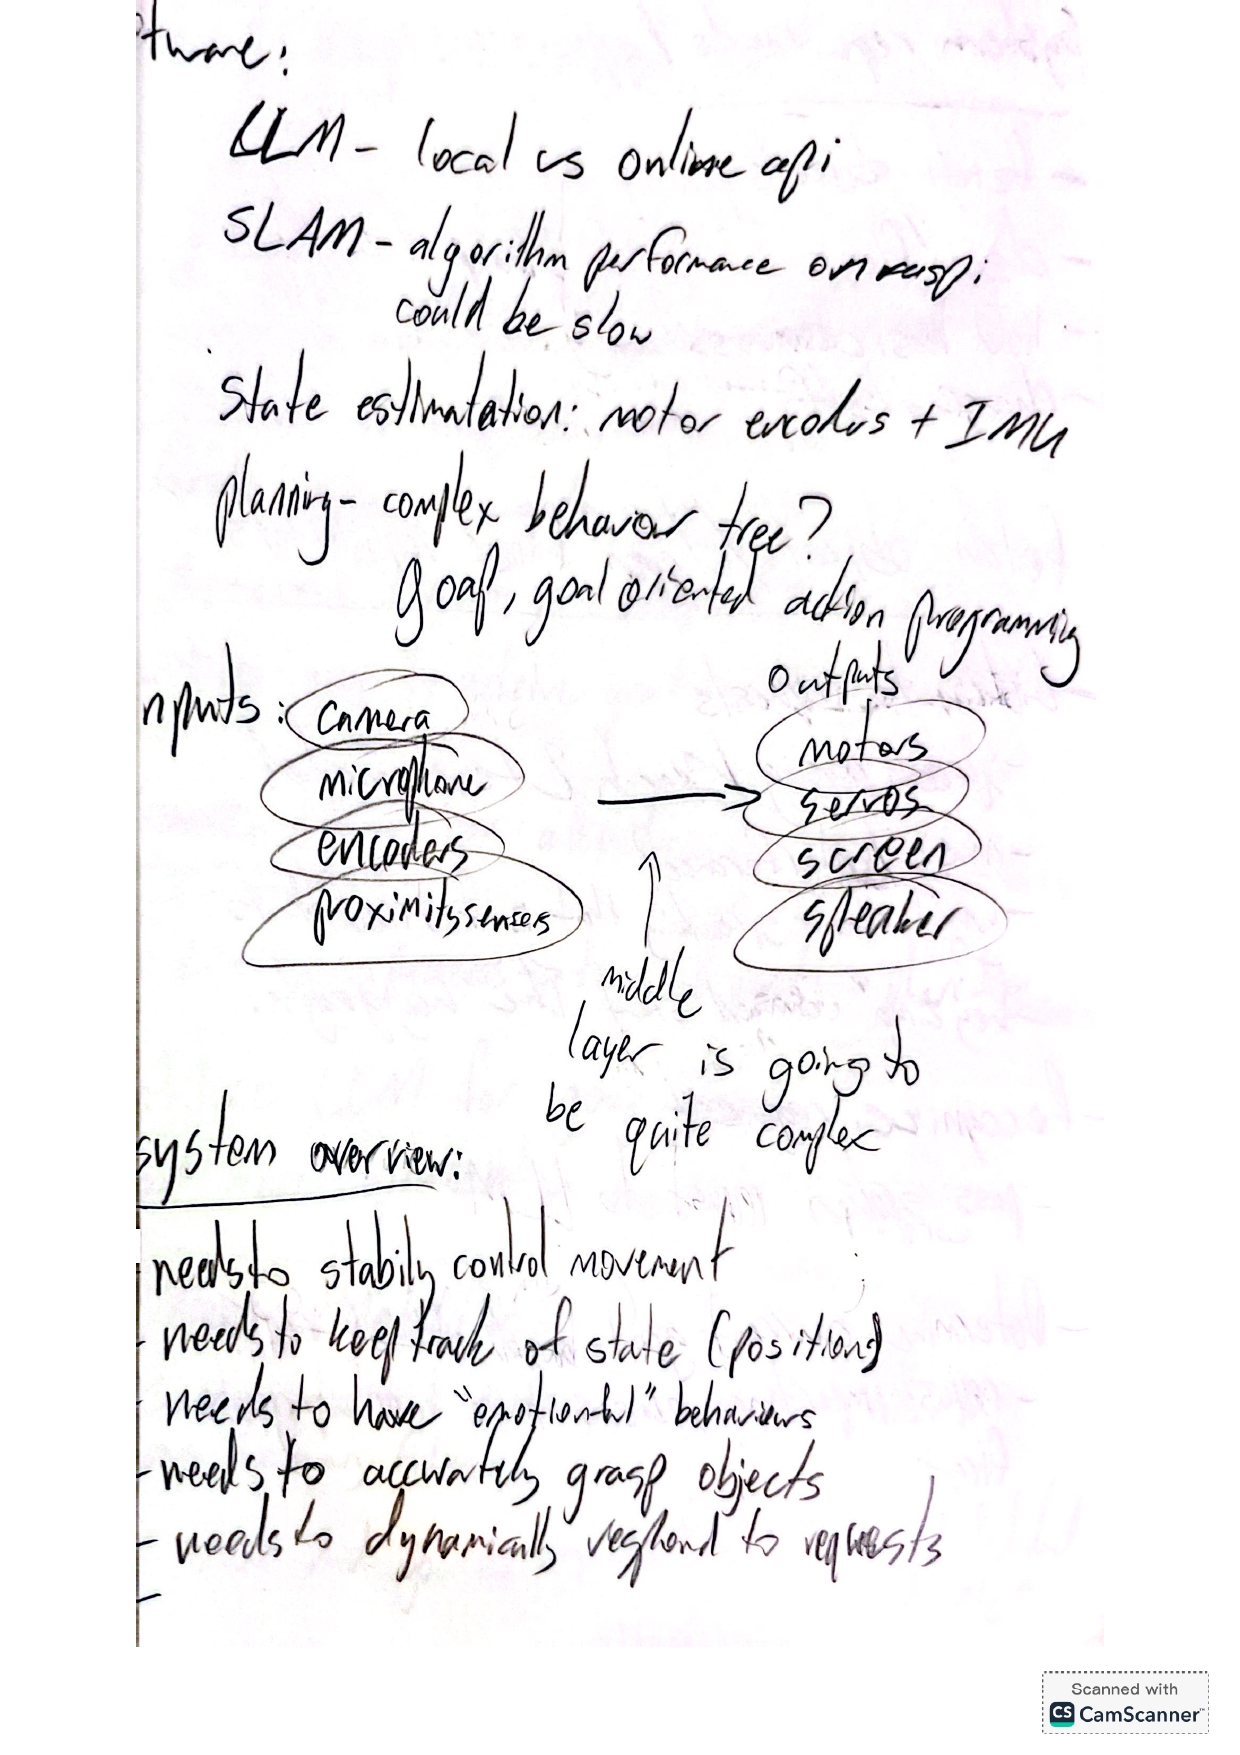 tware:
LLM - local vs online api
SLAM - algorithm performance on raspi
could be slow
State estimatation: motor encoders + IMU
planning - complex behavior tree?
goap, goal oriented action programming
outputs
nputs: camera
motors
microphone
servos
encoders
screen
proximity sensors
speaker
middle
layer is going to
be quite complex
system overview:
needs to stabily control movement
- needs to keep track of state (position)
- needs to have "emotional" behaviors
- needs to accurately grasp objects
- needs to dynamically respond to requests
-
Scanned with
CS CamScanner